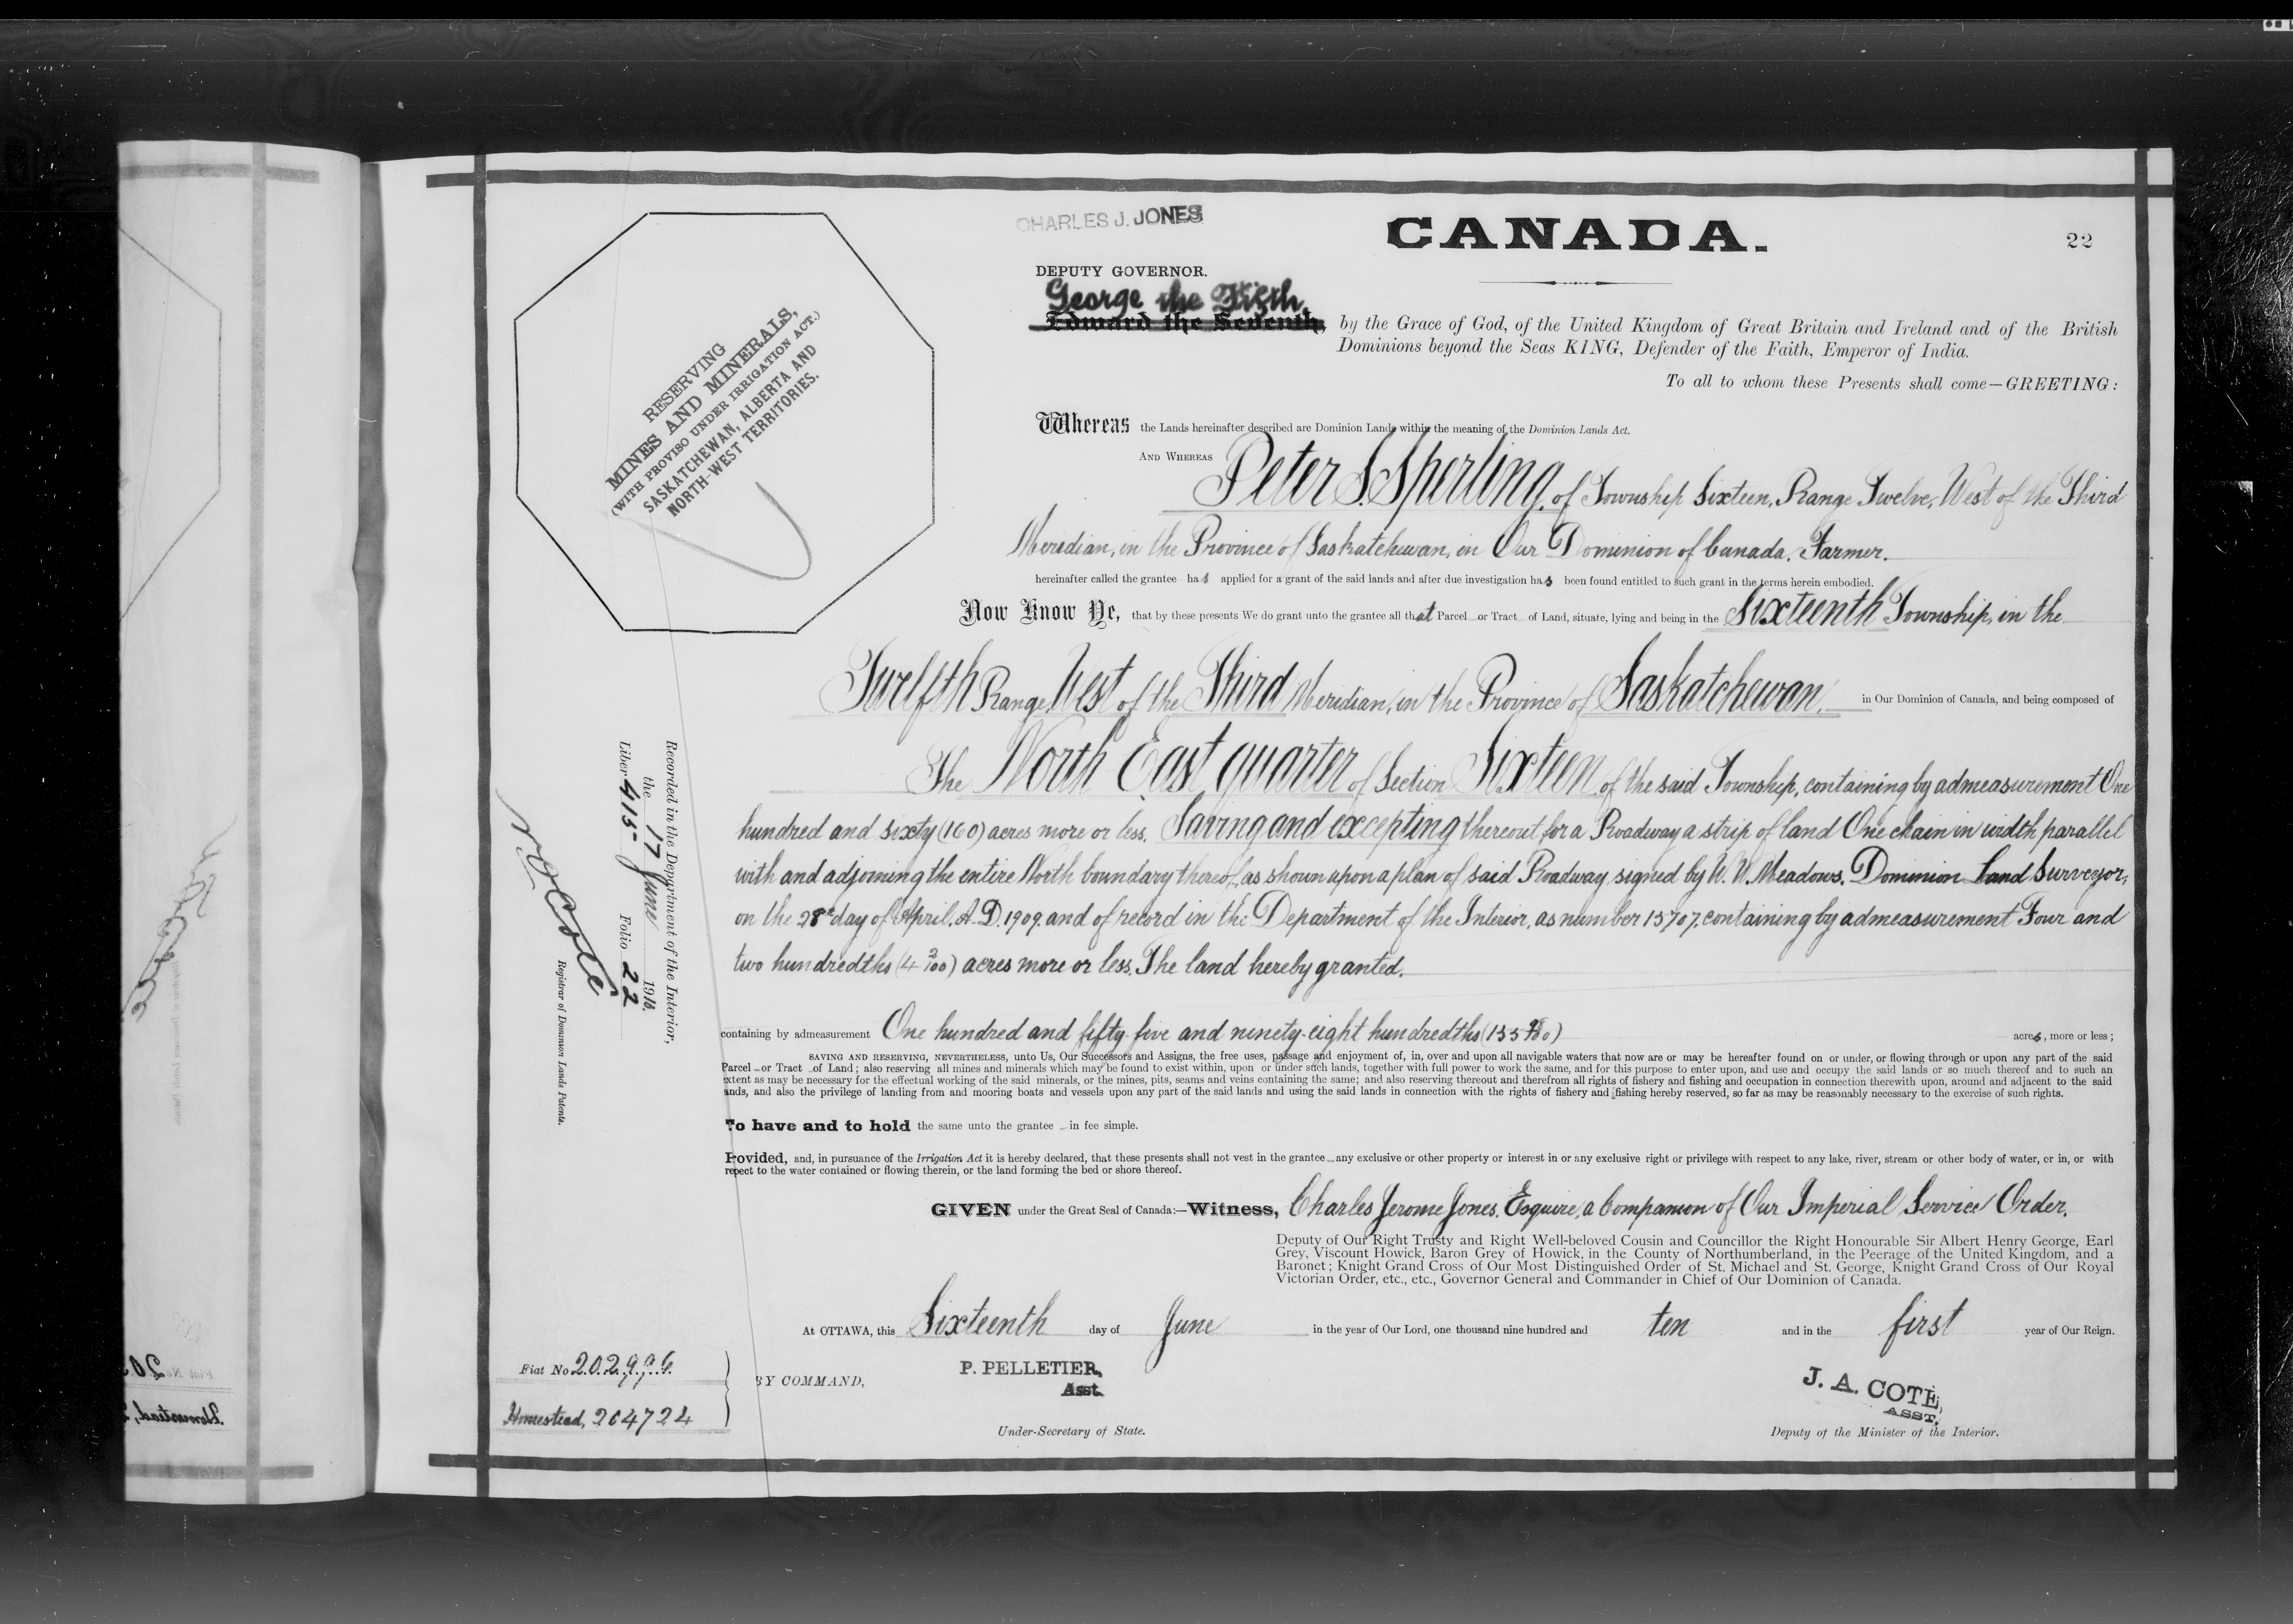 CHARLES J. JONES
CANADA.
22
DEPUTY GOVERNOR.
George the Fifth,
Edward the Seventh,
by the Grace of God, of the United Kingdom of Great Britain and Ireland and of the British
Dominions beyond the Seas KING, Defender of the Faith, Emperor of India.
To all to whom these Presents shall come—GREETING:
RESERVING
MINES AND MINERALS,
(WITH PROVISO UNDER IRRIGATION ACT.)
SASKATCHEWAN, ALBERTA AND
NORTH-WEST TERRITORIES.
Whereas the Lands hereinafter described are Dominion Lands within the meaning of the Dominion Lands Act.
AND WHEREAS Peter S. Sperling, of Township Sixteen, Range Twelve, West of the Third
Meridian, in the Province of Saskatchewan, in Our Dominion of Canada, Farmer.
hereinafter called the grantee has applied for a grant of the said lands and after due investigation has been found entitled to such grant in the terms herein embodied.
Now Know Ye, that by these presents We do grant unto the grantee all that Parcel or Tract of Land, situate, lying and being in the Sixteenth Township, in the
Twelfth Range, West of the Third Meridian, in the Province of Saskatchewan, in Our Dominion of Canada, and being composed of
The North East quarter of Section Sixteen of the said Township, containing by admeasurement One
hundred and sixty (160) acres more or less. Saving and excepting thereout for a Roadway a strip of land One chain in width parallel
with and adjoining the entire North boundary thereof, as shown upon a plan of said Roadway signed by W. W. Meadows, Dominion Land Surveyor,
on the 28th day of April, A. D. 1909, and of record in the Department of the Interior, as number 15707, containing by admeasurement Four and
two hundredths (4 2/100) acres more or less. The land hereby granted.
containing by admeasurement One hundred and fifty-five and ninety-eight hundredths (155 98/100) acres, more or less;
SAVING AND RESERVING, NEVERTHELESS, unto Us, Our Successors and Assigns, the free uses, passage and enjoyment of, in, over and upon all navigable waters that now are or may be hereafter found on or under, or flowing through or upon any part of the said
Parcel or Tract of Land; also reserving all mines and minerals which may be found to exist within, upon or under such lands, together with full power to work the same, and for this purpose to enter upon, and use and occupy the said lands or so much thereof and to such an
xtent as may be necessary for the effectual working of the said minerals, or the mines, pits, seams and veins containing the same; and also reserving thereout and therefrom all rights of fishery and fishing and occupation in connection therewith upon, around and adjacent to the said
ands, and also the privilege of landing from and mooring boats and vessels upon any part of the said lands and using the said lands in connection with the rights of fishery and fishing hereby reserved, so far as may be reasonably necessary to the exercise of such rights.
To have and to hold the same unto the grantee in fee simple.
Provided, and, in pursuance of the Irrigation Act it is hereby declared, that these presents shall not vest in the grantee any exclusive or other property or interest in or any exclusive right or privilege with respect to any lake, river, stream or other body of water, or in, or with
repect to the water contained or flowing therein, or the land forming the bed or shore thereof.
GIVEN under the Great Seal of Canada:—Witness, Charles Jerome Jones, Esquire, a Companion of Our Imperial Service Order,
Deputy of Our Right Trusty and Right Well-beloved Cousin and Councillor the Right Honourable Sir Albert Henry George, Earl
Grey, Viscount Howick, Baron Grey of Howick, in the County of Northumberland, in the Peerage of the United Kingdom, and a
Baronet; Knight Grand Cross of Our Most Distinguished Order of St. Michael and St. George, Knight Grand Cross of Our Royal
Victorian Order, etc., etc., Governor General and Commander in Chief of Our Dominion of Canada.
At OTTAWA, this Sixteenth day of June in the year of Our Lord, one thousand nine hundred and ten and in the first year of Our Reign.
BY COMMAND,
P. PELLETIER,
Asst.
Under-Secretary of State.
J. A. COTE,
ASST.
Deputy of the Minister of the Interior.
Recorded in the Department of the Interior,
the 17 June 1910.
Liber 415 Folio 22
Registrar of Dominion Lands Patents.
Fiat No 202996
Homestead, 204724